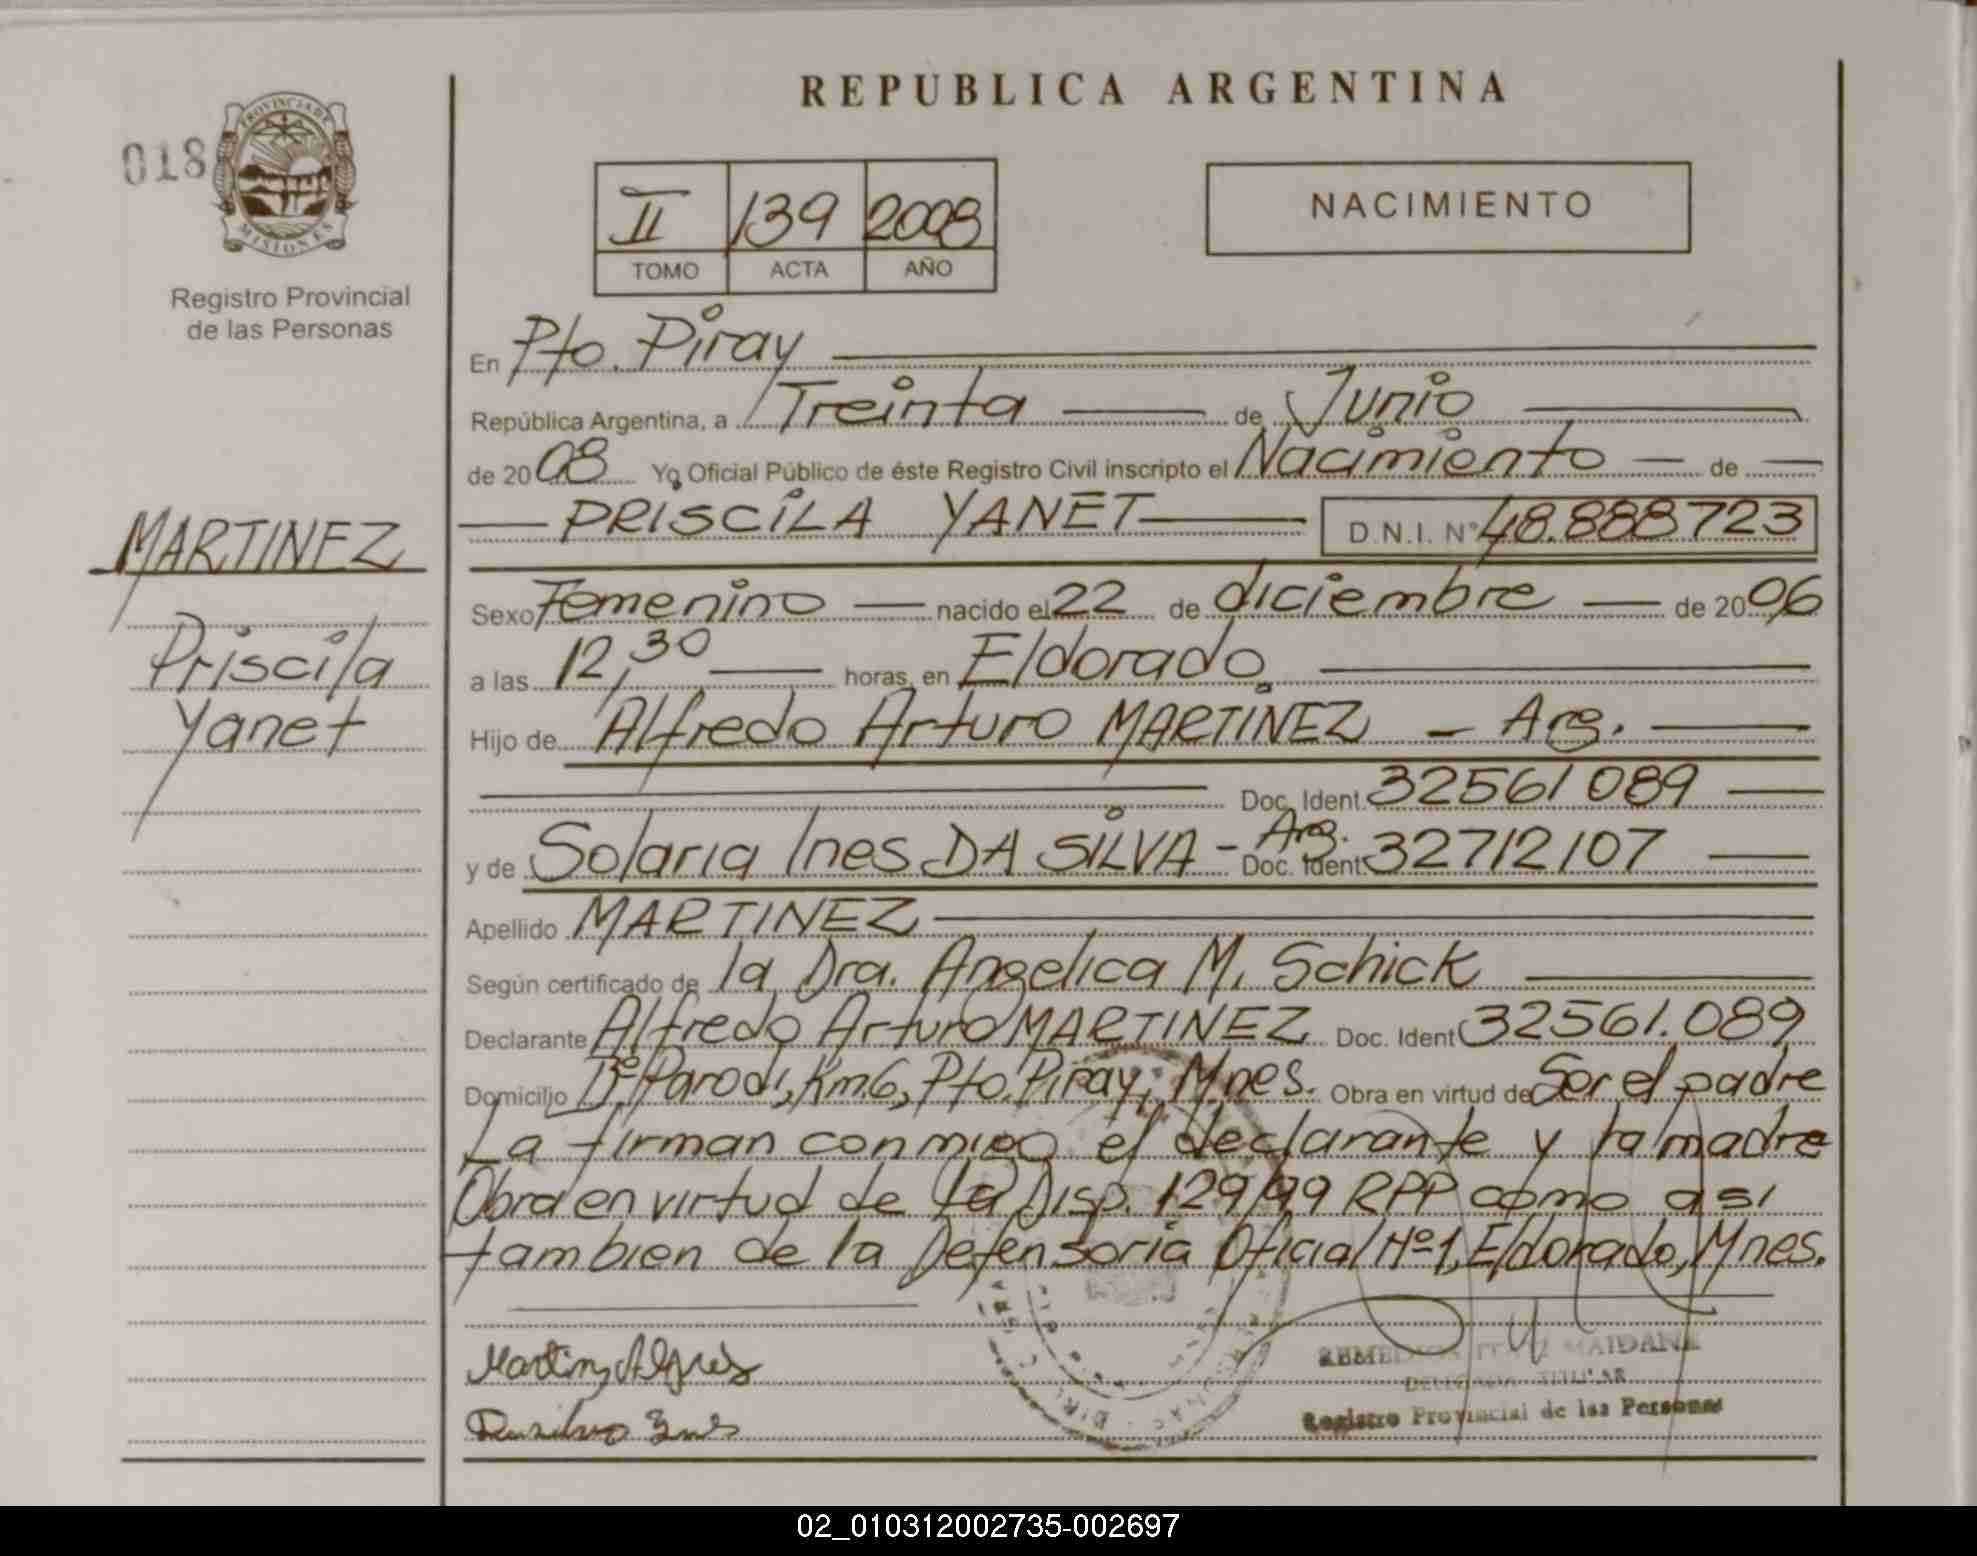 REPUBLICA ARGENTINA
018
PROVINCIA DE
MISIONES
Registro Provincial
de las Personas
II 139 2008
TOMO ACTA AÑO
NACIMIENTO
En Pto. Piray
República Argentina, a Treinta de Junio
de 2008 Yo Oficial Público de éste Registro Civil inscripto el Nacimiento de
PRISCILA YANET D.N.I. N° 48.888723
MARTINEZ
Priscila
Yanet
Sexo Femenino nacido el 22 de diciembre de 2006
a las 12,30 horas, en Eldorado.
Hijo de Alfredo Arturo MARTINEZ - Arg.
Doc. Ident. 32561089
y de Solaria Ines DA SILVA - Arg. Doc. Ident. 32712107
Apellido MARTINEZ
Según certificado de la Dra. Angelica M. Schick
Declarante Alfredo Arturo MARTINEZ Doc. Ident 32561.089
Domicilio B° Parodi, Km6, Pto. Piray, Mnes. Obra en virtud de Ser el padre
La firman conmigo el declarante y la madre
Obra en virtud de la Disp. 129/99 RPP como asi
tambien de la Defensoria Oficial Nº 1, Eldorado, Mnes.
MAIDANA
Registro Provincial de las Personas
02_010312002735-002697